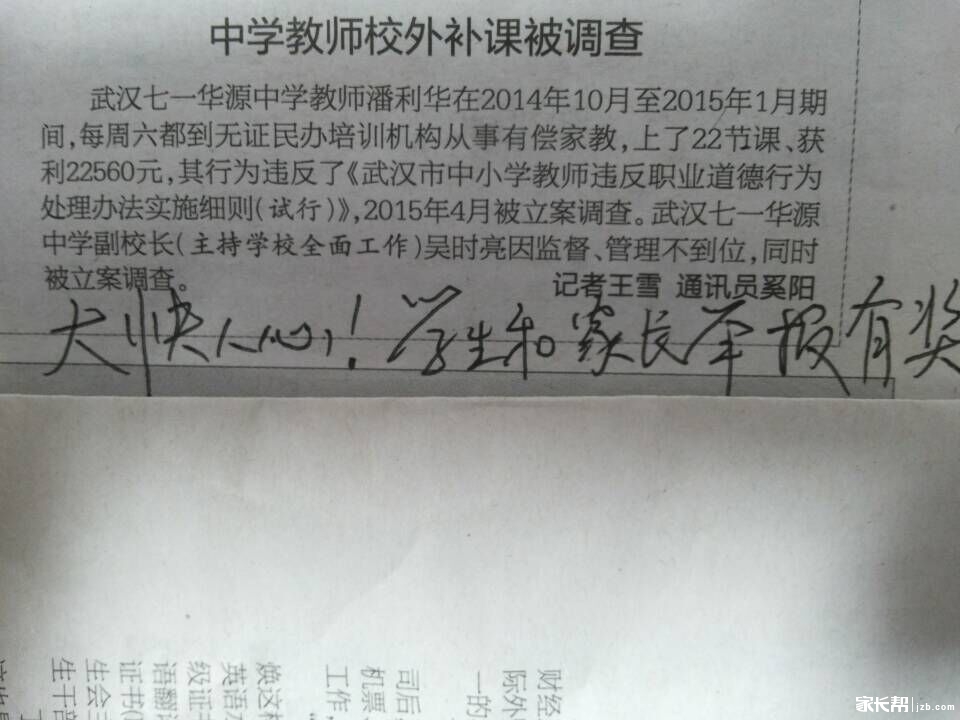 中学教师校外补课被调查
武汉七一华源中学教师潘利华在2014年10月至2015年1月期
间,每周六都到无证民办培训机构从事有偿家教,上了22节课、获
利22560元,其行为违反了《武汉市中小学教师违反职业道德行为
处理办法实施细则(试行)》,2015年4月被立案调查。武汉七一华源
中学副校长(主持学校全面工作)吴时亮因监督、管理不到位,同时
被立案调查。 记者王雪 通讯员奚阳
大快人心!学生和家长举报有奖
财经
际外
一的
司后
机票、
工作,
焕这样
英语
级证
语翻译
证书(
生会主
生干部
家长帮|jzb.com